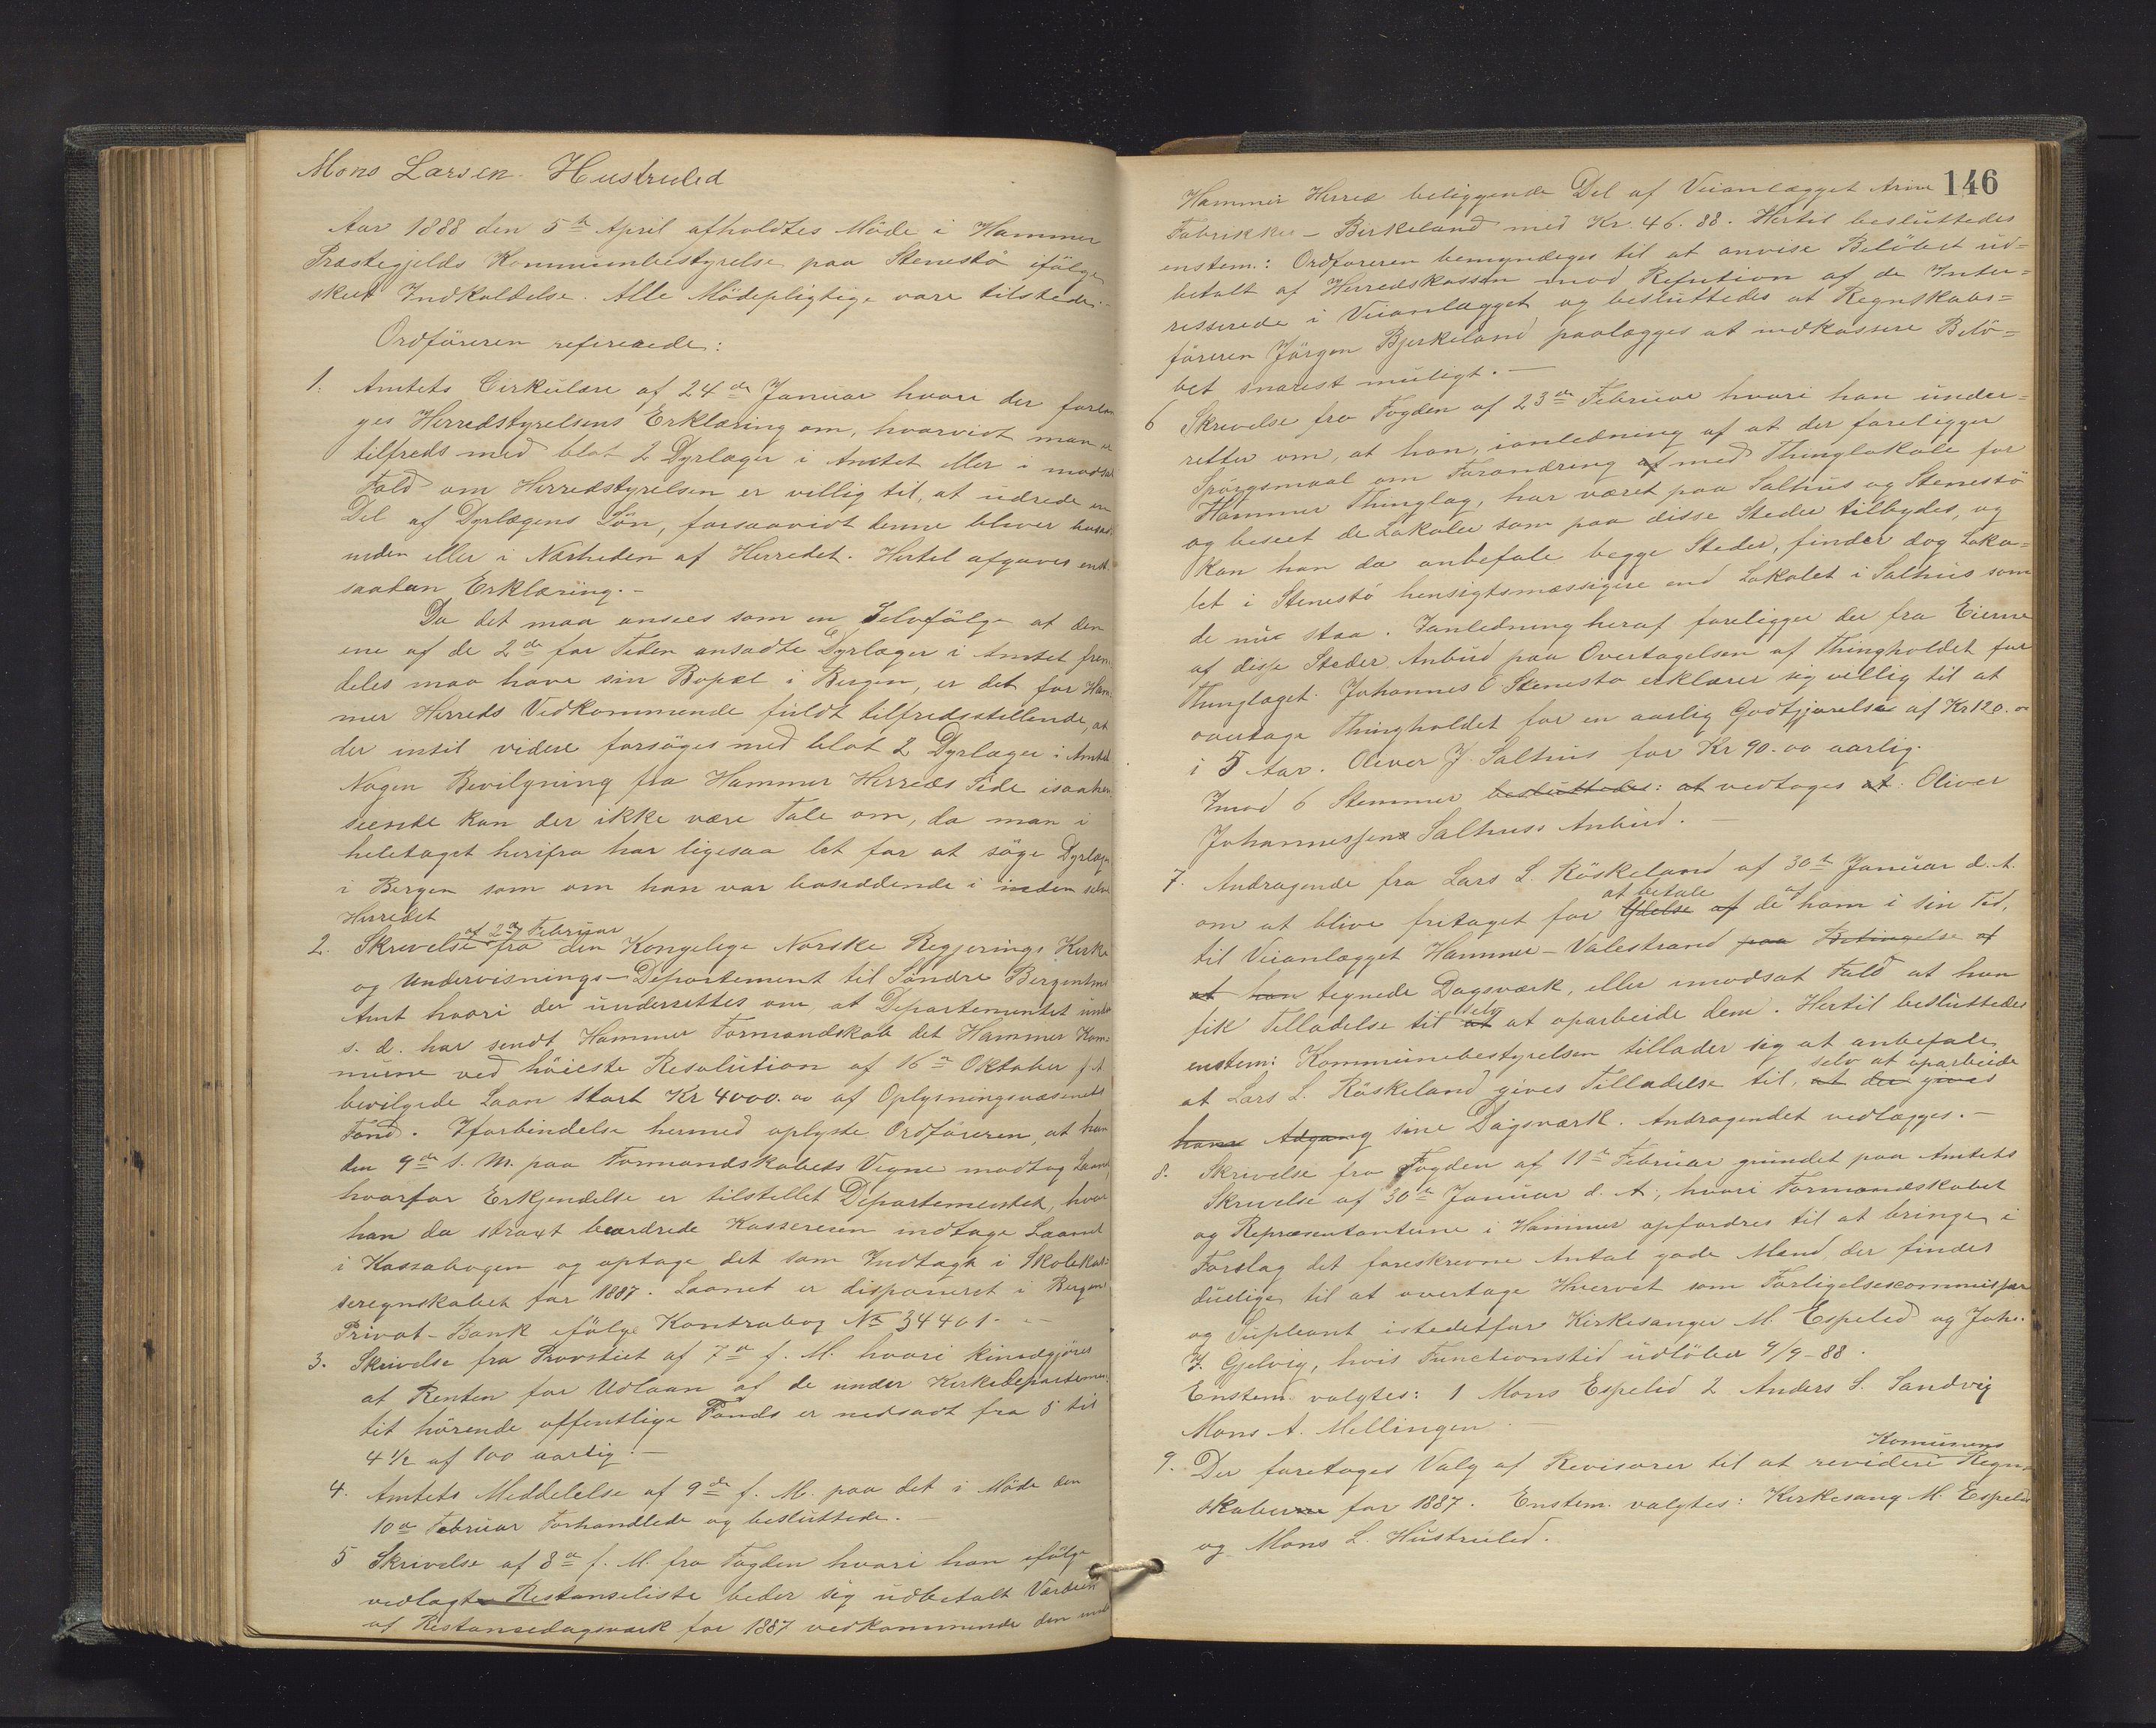 Mons Larsen Hustruled
Aar 1888 den 5te April afholdtes Möde i Hammer
Præstegjelds Kommunbestyrelse paa Stenestö ifölge
skeet Indkaldelse. Alle Mödepligtige vare tilstede.-
Ordföreren refererede:
1. Amtets Cirkulære af 24de Januar hvori der forlan
ges Herredstyrelsens Erklæring om, hvorvidt man er
tilfreds med blot 2 Dyrlæger i Amtet eller i modsat
Fald om Herredstyrelsen er villig til, at udrede en
Del af Dyrlægens Lön, forsaavidt denne bliver bosat
inden eller i Nærheden af Herredet. Hertil afgaves enst.
saadan Erklæring.-
Da det maa ansees som en Selvfölge at den
ene af de 2de for Tiden ansadte Dyrlæger i Amtet frem
deles maa have sin Bopæl i Bergen, er det for Ham
mer Herreds Vedkommende fuldt tilfredsstillende, at
der intil videre forsöges med blot 2 Dyrlæger i Amtet
Nogen Bevilgning fra Hammer Herreds Side isaahen
seende kan der ikke være Tale om, da man i
heletaget herifra har ligesaa let for at söge Dyrlæge
i Bergen som om han var bosiddende i inden selve
Herredet
af 2de Februar
2. Skrivelse fra den Kongelige Norske Regjerings Kirke
og Undervisnings-Departement til Söndre Bergenhus
Amt hvori der underrettes om at Departementet under
s. d. har sendt Hammer Formandskab det Hammer Kom-
mune ved höieste Resolution af 16de Oktober f. A
bevilgede Laan stort Kr 4000.00 af Oplysningsvæsenets
Fond. Iforbindelse hermed oplyste Ordföreren, at han
den 9de s. M. paa Formandskabets Vegne modtog Laanet,
hvorfor Erkjendelse er tilstillet Departementet, hvor
han da straxt beordrede Kassereren indtage Laanet
i Kassabogen og optage det som Indtægt i Skolekas-
seregnskabet for 1887. Laanet er disponeret i Bergens
Privat-Bank ifölge Kontrabog No 34401.
3. Skrivelse fra Provstiet af 7de f. M. hvori kundgjöres
at Renten for Udlaan af de under Kirkedepartemen
tet hörende offentlige Fonds er nedsadt fra 5 til
4 1/2 af 100 aarlig.-
4. Amtets Meddelelse af 9de f. M. paa det i Möde den
10de Februar Forhandlede og besluttede.-
5 Skrivelse af 8de f. M. fra Fogden hvori han ifölge
vedlagte Restanseliste beder sig udbetalt Værdien
af Restansedagsværk for 1887 vedkommende den under
146
Hammer Herred beliggende Del af Veianlægget Arne
Fabrikker - Birkeland med Kr. 46.88. Hertil besluttedes
enstem.: Ordföreren bemyndeges til at anvise Belöbet ud-
betalt af Herredskassen mod Refution af de Inter-
resserede i Veianlægget og besluttedes at Regnskabs-
föreren Jörgen Bjerkeland paalægges at indkassere Belö-
bet snarest muligt.-
6 Skrivelse fra Fogden af 23de Februar hvori han under-
retter om, at han, ianledning af at der foreligger
Spörgsmaal om Forandring af med Thinglokale for
Hammer Thinglag, har været paa Salhus og Stenestö
og beseet de Lokaler som paa disse Steder tilbydes, og
kan han da anbefale begge Steder, finder dog Loka-
let i Stenestö hensigtsmæssigere end Lokalet i Salhus som
de nu staa. Ianledning heraf foreligger der fra Eierne
af disse Steder Anbud paa Overtagelsen af Thingholdet for
Thinglaget. Johannes O. Stenestö erklærer sig villig til at
overtage Thingholdet for en aarlig Godtgjörelse af Kr 120.00
i 5 Aar. Oliver J. Salhus for Kr 90.00 aarlig.
Imod 6 Stemmer besluttedes: at vedtoges at: Oliver
Johannessens Salhuss Anbud.-
7. Andragende fra Lars L. Röskeland af 30te Januar d. A.
at betale af
om at blive fritaget for Ydelse af de ham i sin Tid,
til Veianlægget Hammer-Valestrand paa Betingelse af
at han tegnede Dagsværk, eller imodsat Fald at han
selv
fik Tilladelse til at at oparbeide dem. Hertil besluttedes
enstem: Kommunebestyrelsen tillader sig at anbefale
selv at oparbeide
at Lars L. Röskeland gives Tilladelse til, at der gives
ham Adgang sine Dagsværk. Andragendet vedlægges.-
8. Skrivelse fra Fogden af 11te Februar grundet paa Amtets
Skrivelse af 30te Januar d. A., hvori Formandskabet
og Repræsentanterne i Hammer opfordres til at bringe i
Forslag det foreskrevne Antal gode Mænd der findes
duelige til at overtage Hvervet som Forligelsescommissær
og Supleant istedetfor Kirkesanger M. Espelid og Johs.
J. Gjelvig, hvis Functionstid udlöber 9/9-88.
Enstem. valgtes: 1 Mons Espelid 2 Anders S. Sandvig
Mons A. Mellingen.-
Komunens
9. Der foretoges Valg af Revisorer til at revidere Regn-
skaberne for 1887. Enstem. valgtes: Kirkesang. M. Espelid
og Mons L. Hustruled.